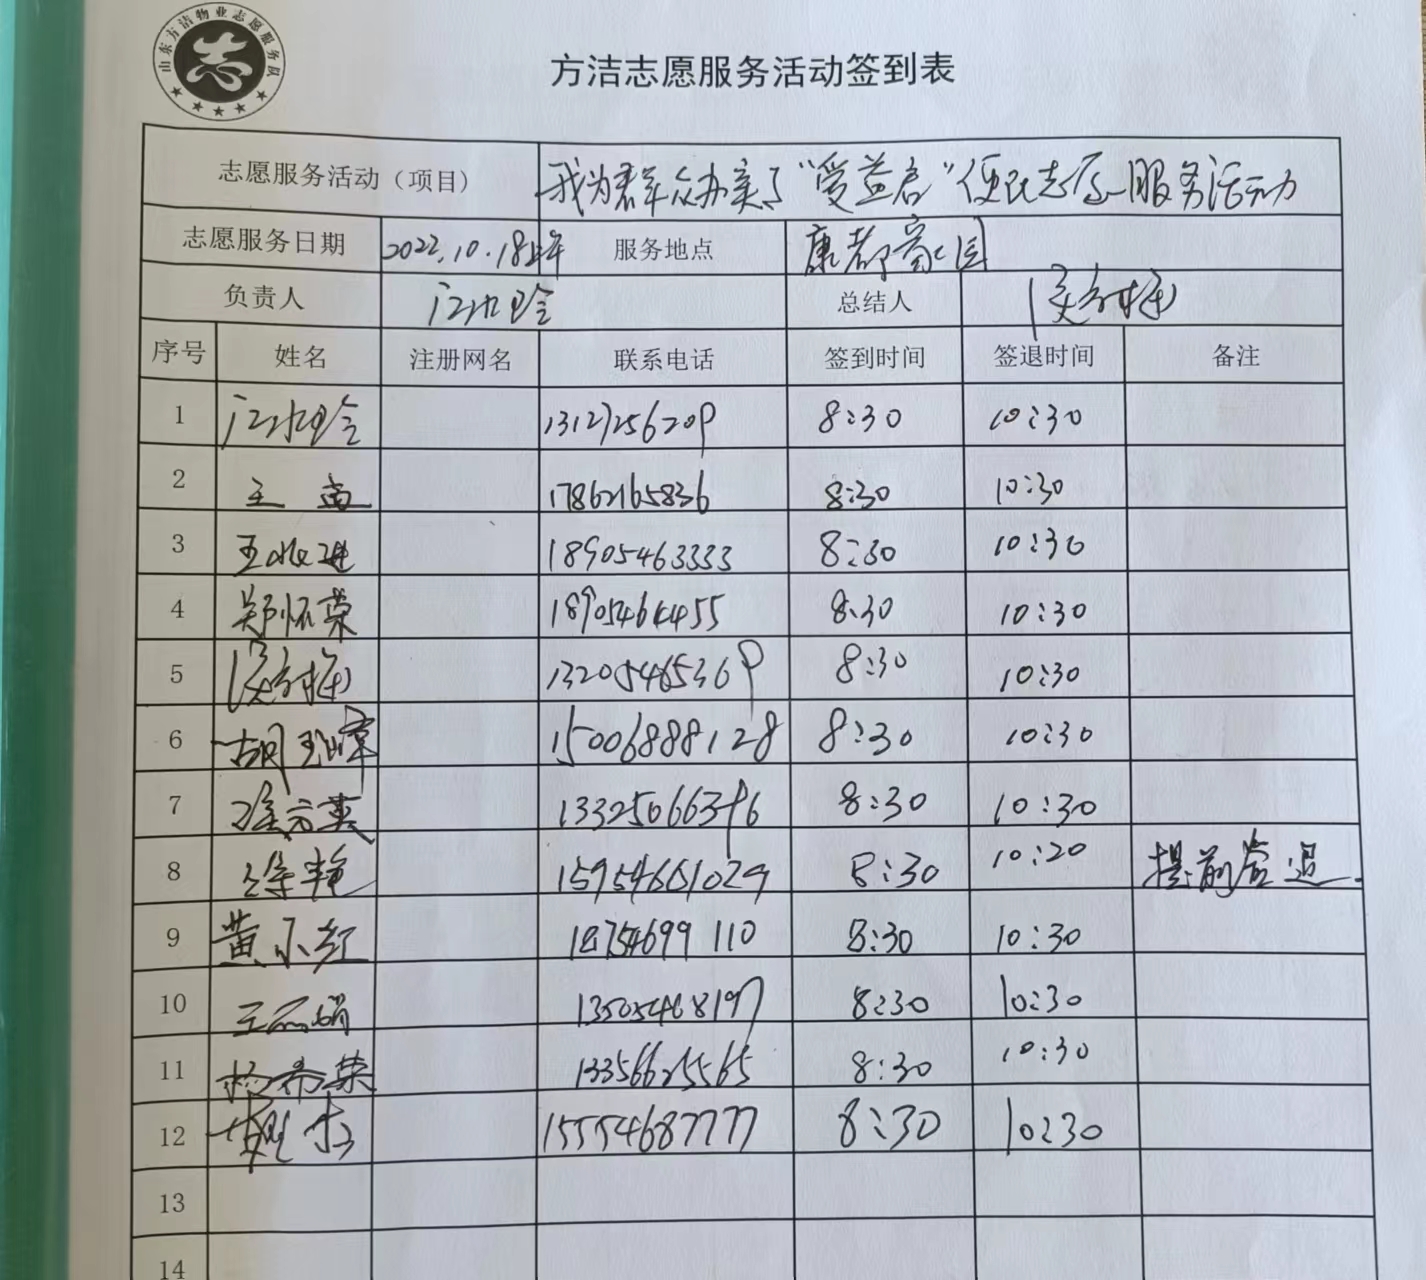 山东方洁物业志愿服务队
志
方洁志愿服务活动签到表
志愿服务活动（项目） 我为群众办实事"受益者"便民志愿服务活动
志愿服务日期 2022.10.18上午 服务地点 康都家园
负责人 总结人
序号 姓名 注册网名 联系电话 签到时间 签退时间 备注
1 13127256209 8:30 10:30
2 王 17862165836 8:30 10:30
3 王 进 18905463333 8:30 10:30
4 郑怀荣 18905464455 8:30 10:30
5 13205465369 8:30 10:30
6 胡玉峰 15006888128 8:30 10:30
7 13325066396 8:30 10:30
8 徐艳 15954661029 8:30 10:20 提前签退.
9 黄小红 18754699110 8:30 10:30
10 王丽娟 13505468197 8:30 10:30
11 杨希荣 13356625565 8:30 10:30
12 15554687777 8:30 10:30
13
14